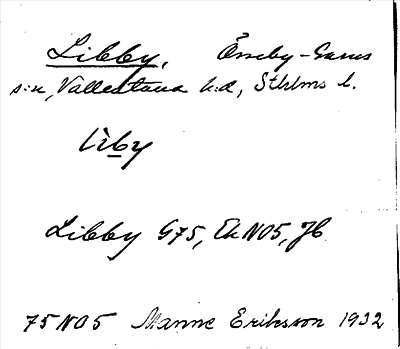 Libby, Össeby-Garns
s:n, Vallentuna h:d, Sthlms l.
lìby
Libby G75, Ek N05, Jb
75 N05 Manne Eriksson 1932